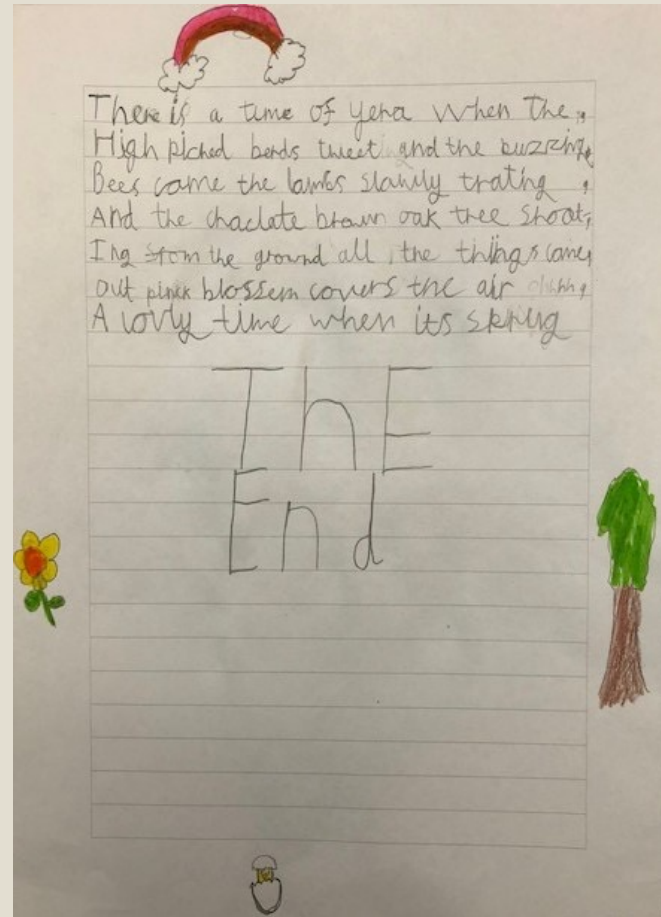 There is a time of yera when the,
High piched berds tweet and the buzzing,
Bees came the lambs slawly trating,
And the chaclate brawn oak tree shoot,
Ing from the ground all the things came,
out pinck blossem covers the air
A lovly time when its skring
ThE
End